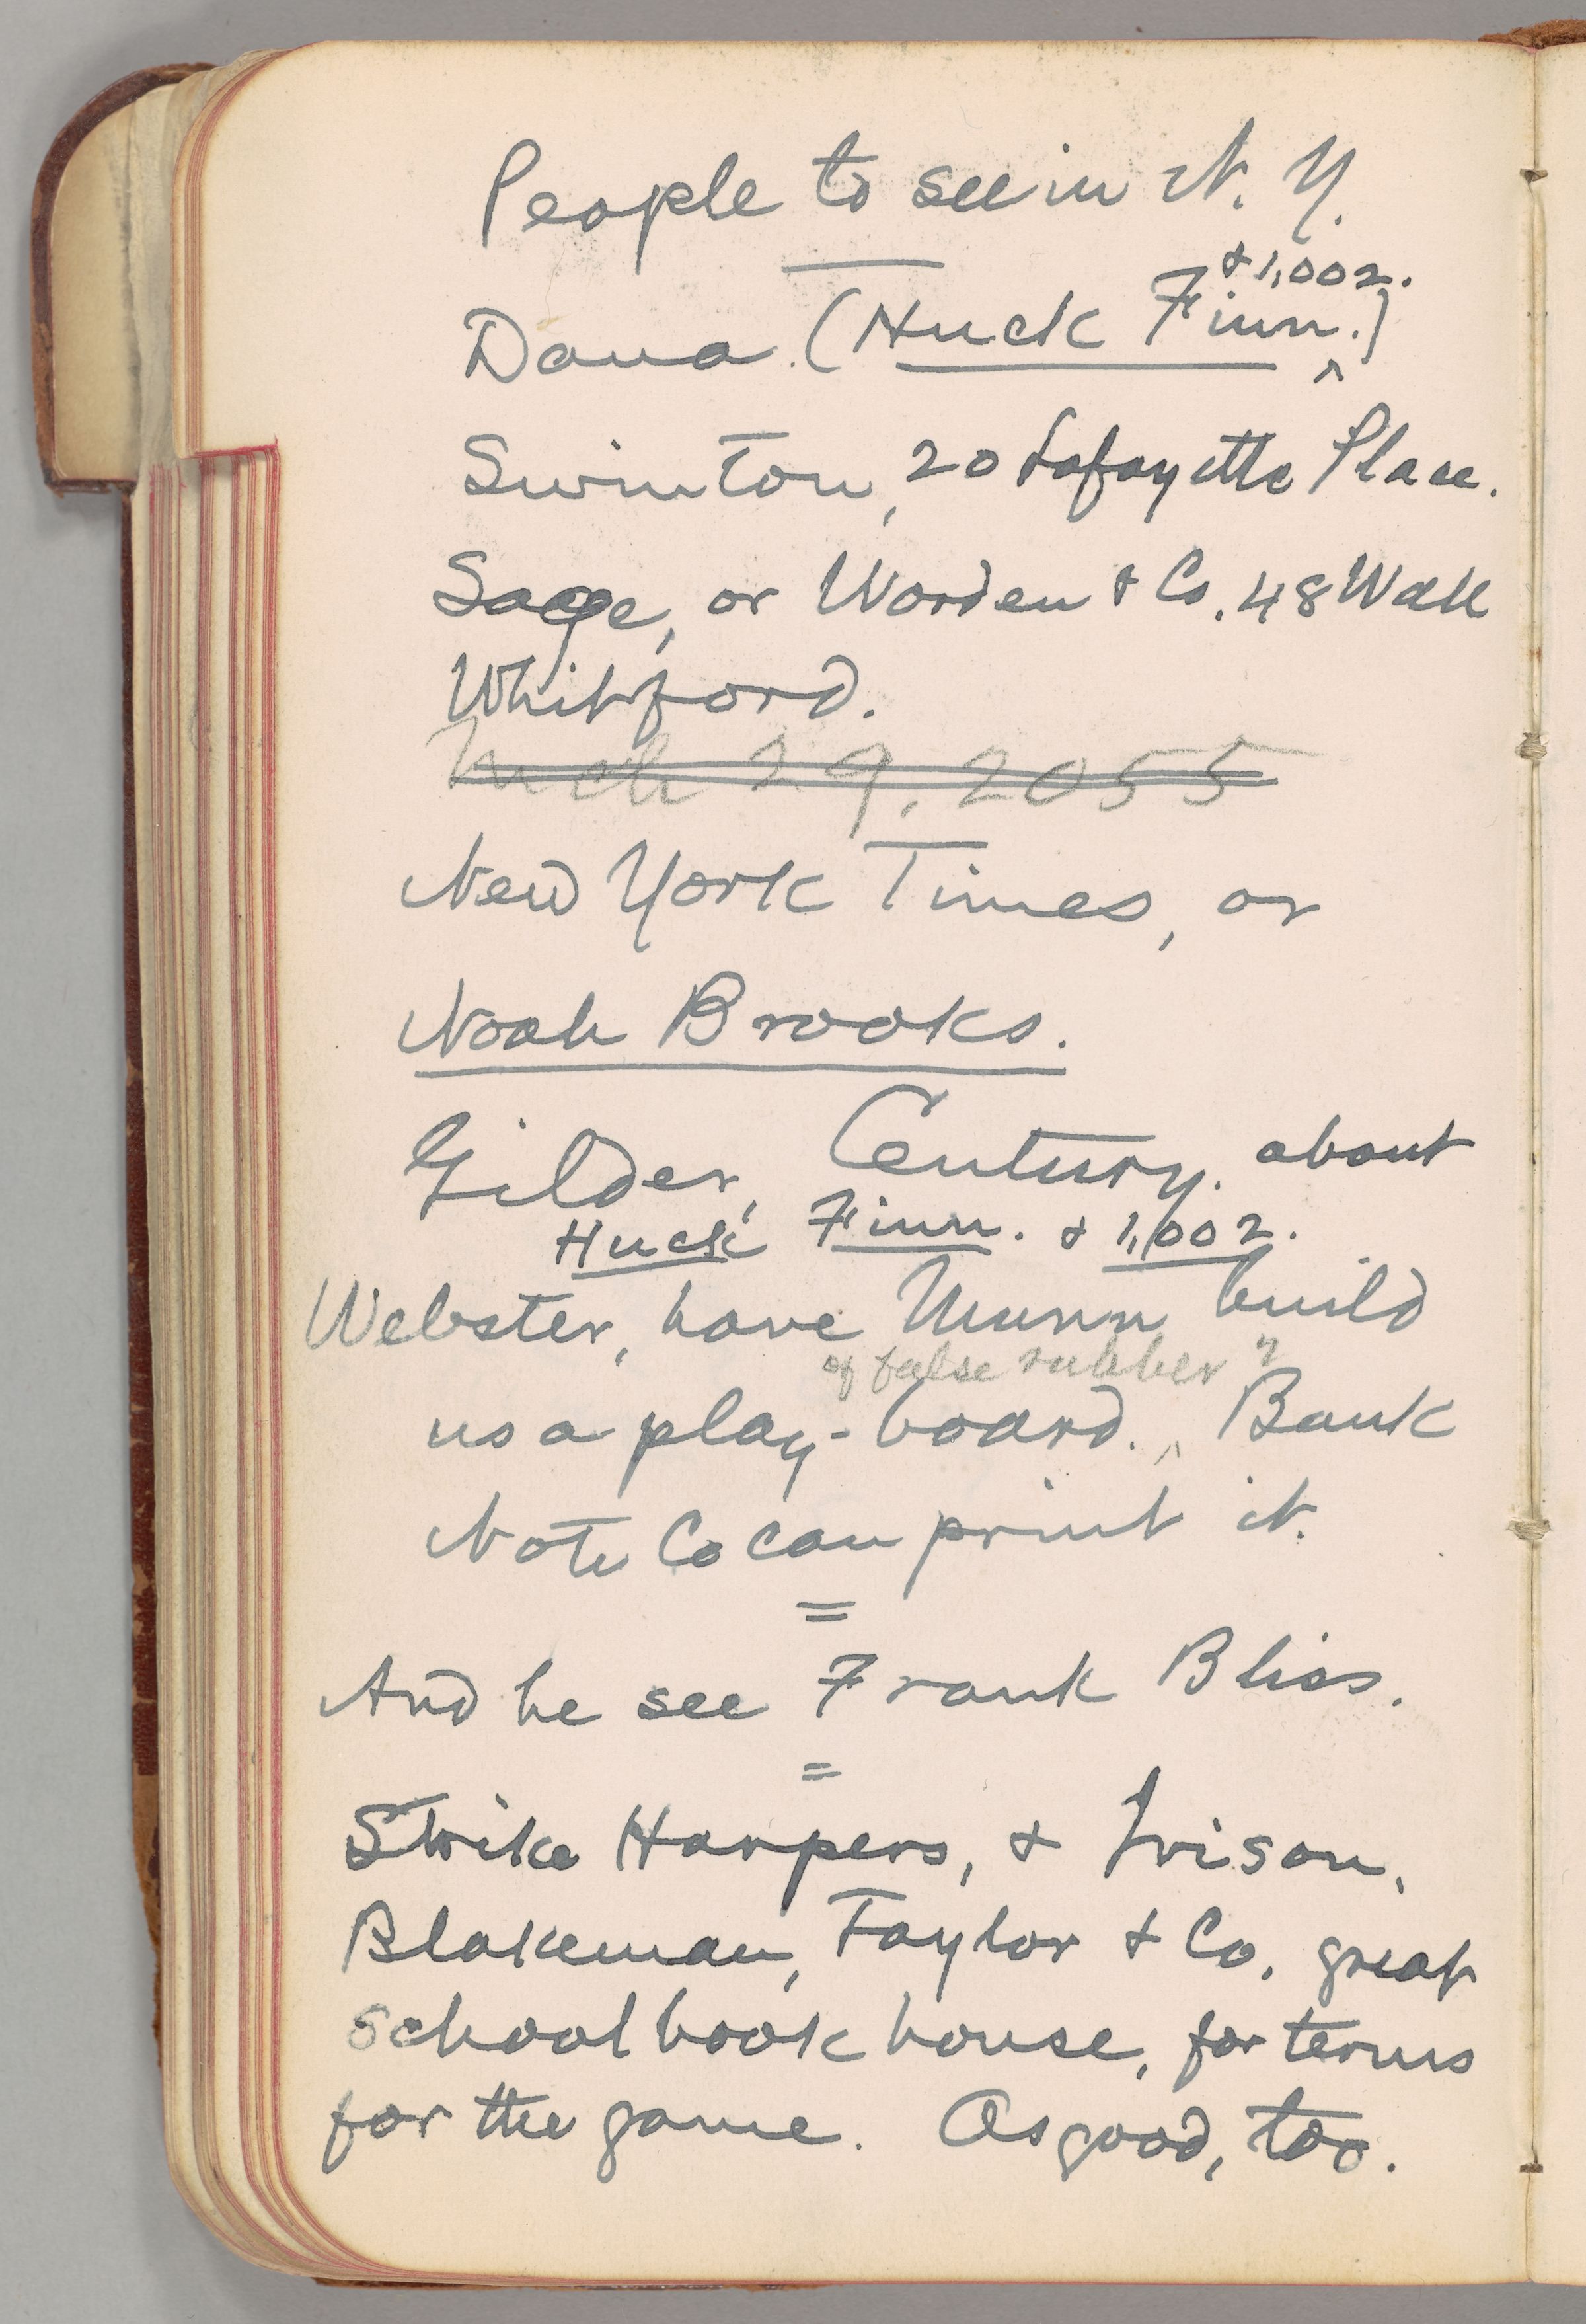 People to see in N. Y.
& 1,002.
Dana. (Huck Finn.)
Swinton, 20 Lafayette Place.
Sage, or Worden & Co. 48 Wall
Whitford.
Mch 29, 2055
New York Times, or
Noah Brooks.
Gilder, Century. about
Huck Finn. & 1,002.
Webster, have Munn build
of false rubber?
us a play-board. Bank
Note Co can print it.
=
And he see Frank Bliss.
=
Strike Harpers, & Ivison,
Blakeman, Taylor & Co, great
schoolbook house, for terms
for the game. Osgood, too.